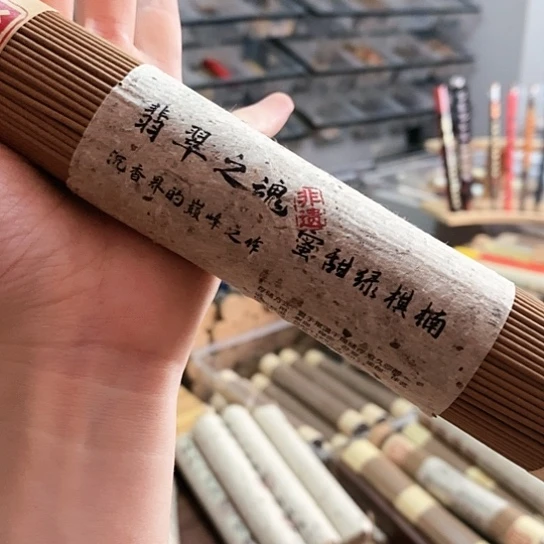 翡翠之魂
沉香界的巅峰之作
非遗
蜜甜绿棋楠